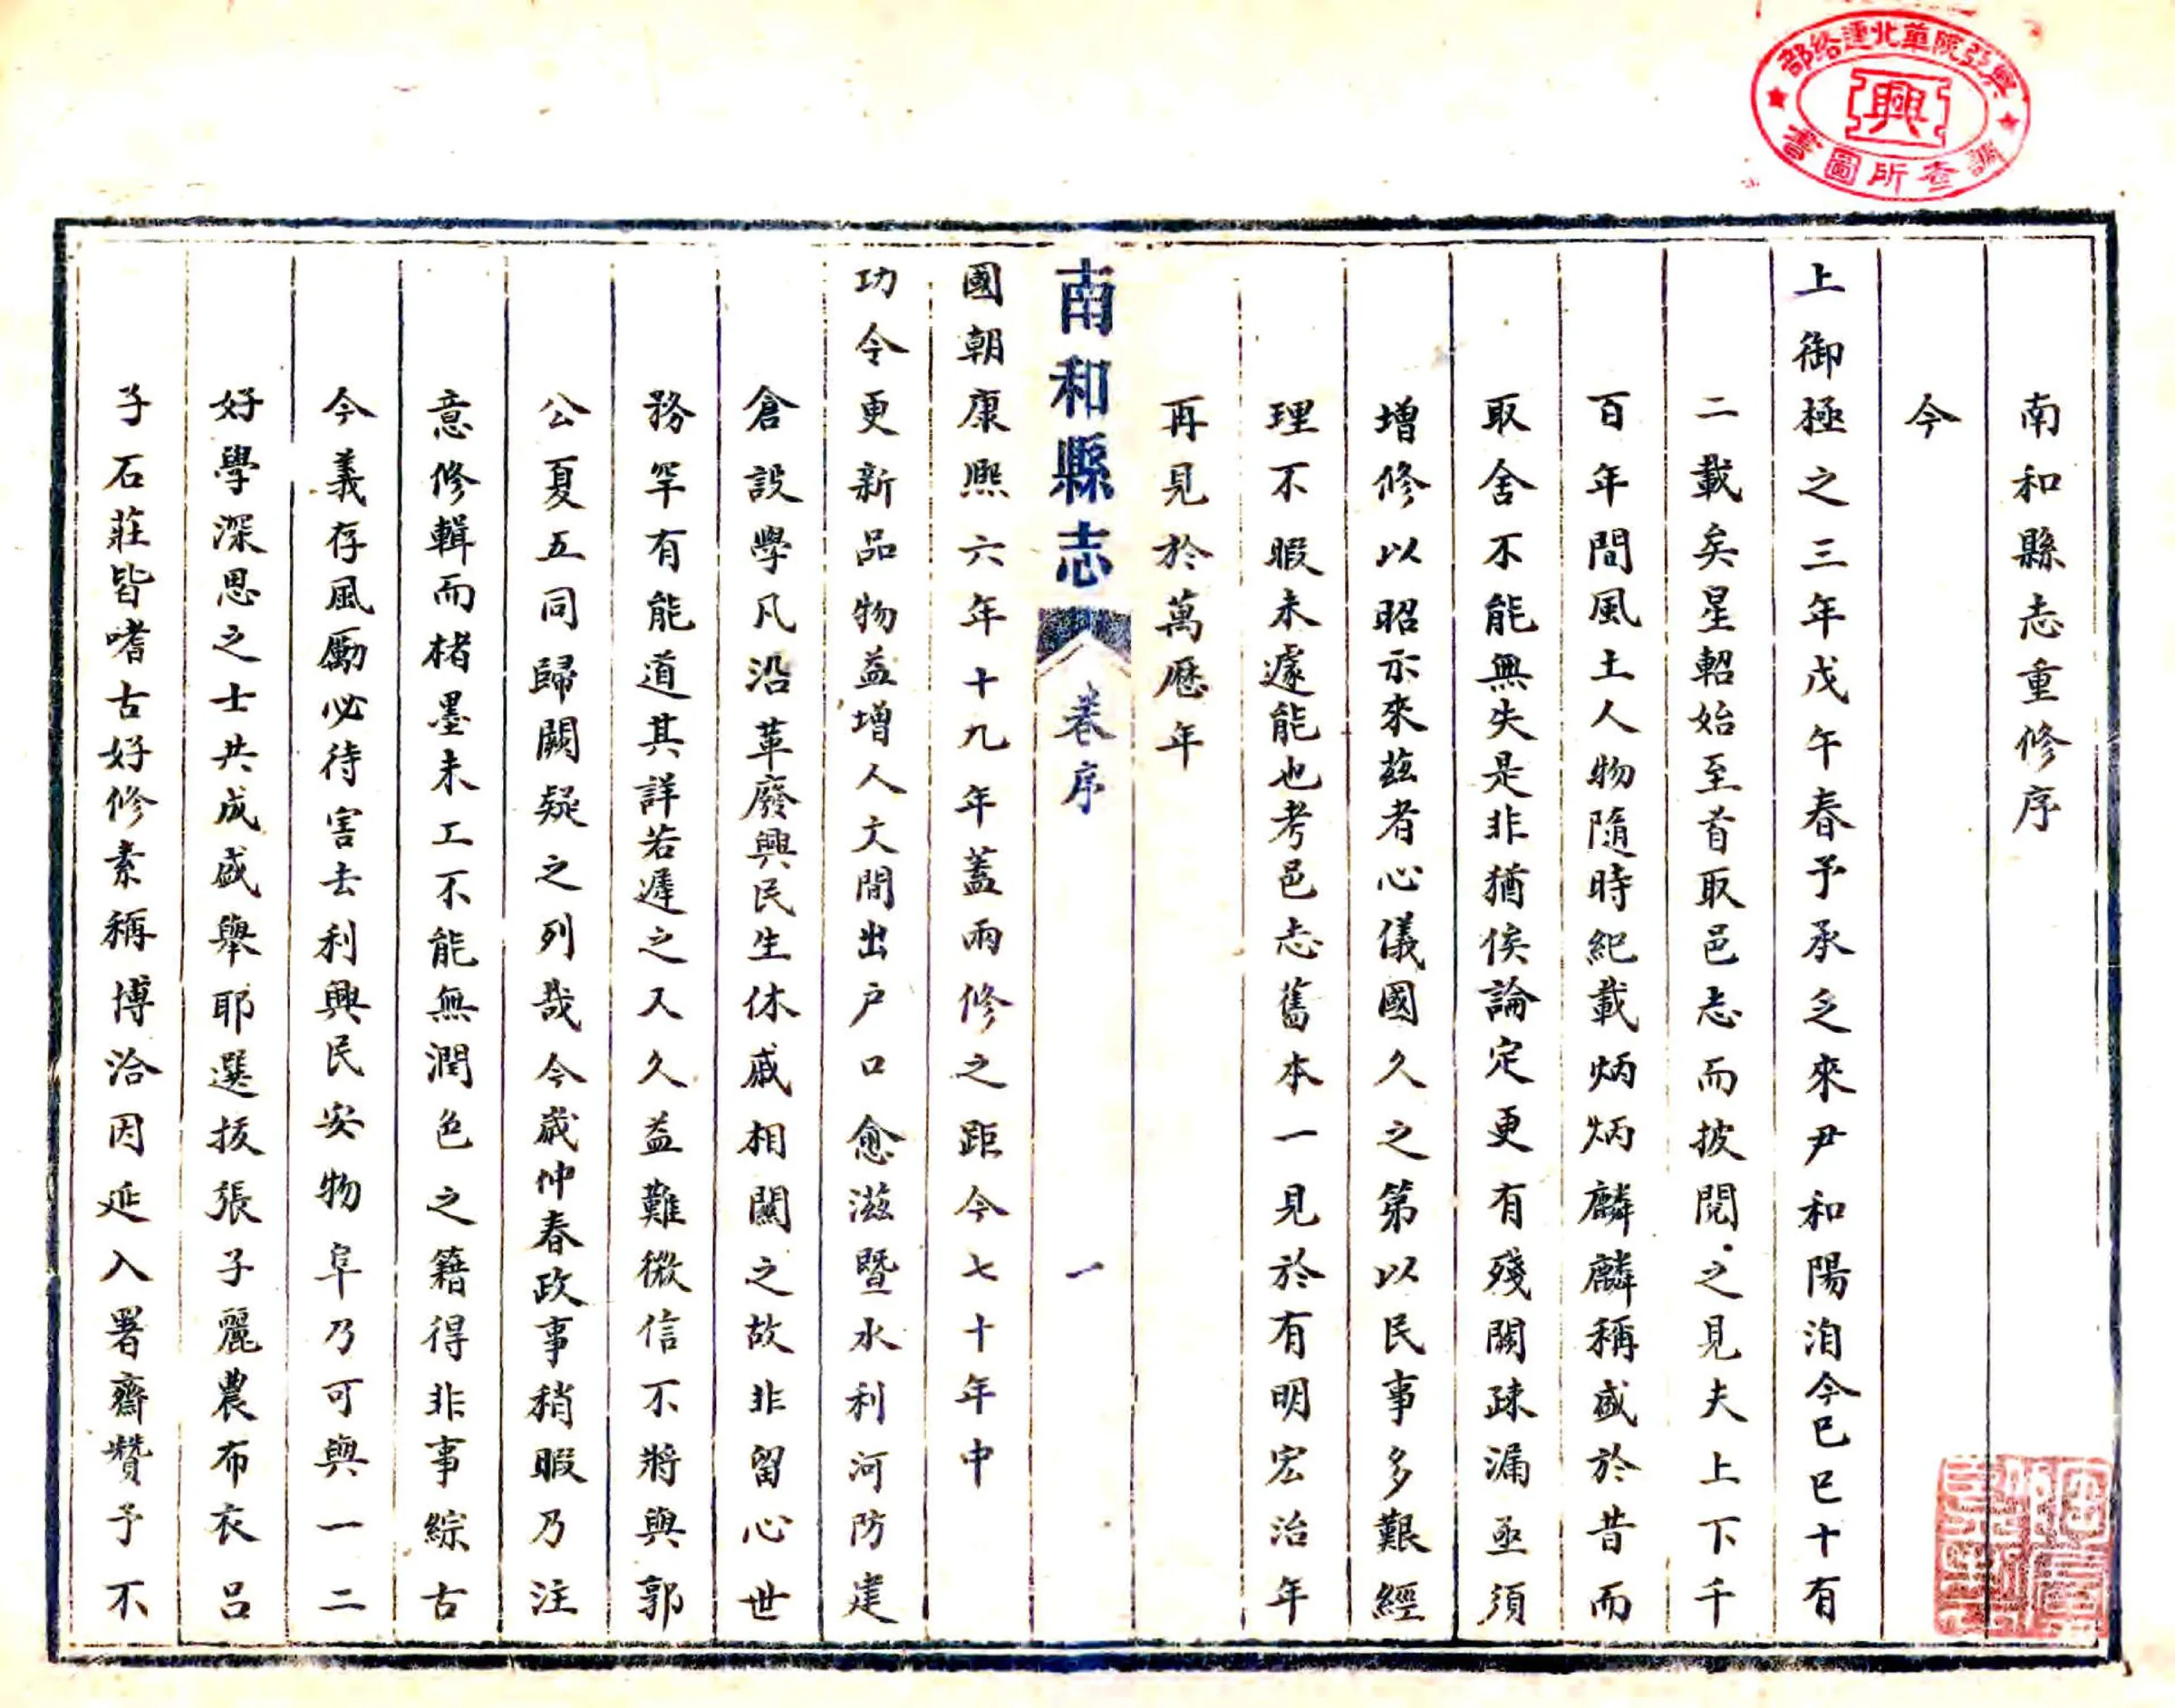 興亞院華北連絡部
興
調查所圖書
南和縣志重修序
今
上御極之三年戊午春予承乏來尹和陽洎今己巳十有
二載矣星軺始至首取邑志而披閱之見夫上下千
百年間風土人物隨時紀載炳炳麟麟稱盛於昔而
取舍不能無失是非猶俟論定更有殘闕疎漏亟須
增修以昭示來茲者心儀國久之第以民事多艱經
理不暇未遽能也考邑志舊本一見於有明宏治年
再見於萬曆年
南和縣志 卷序 一
國朝康熙六年十九年蓋兩修之距今七十年中
功令更新品物益增人文間出户口愈滋暨水利河防建
倉設學凡沿革廢興民生休戚相關之故非留心世
務罕有能道其詳若遲之又久益難徵信不將與郭
公夏五同歸闕疑之列哉今歲仲春政事稍暇乃注
意修輯而楮墨未工不能無潤色之籍得非事綜古
今義存風勵必待害去利興民安物阜乃可與一二
好學深思之士共成盛舉耶選拔張子麗農布衣呂
子石莊皆嗜古好修素稱博洽因延入署齋贊予不